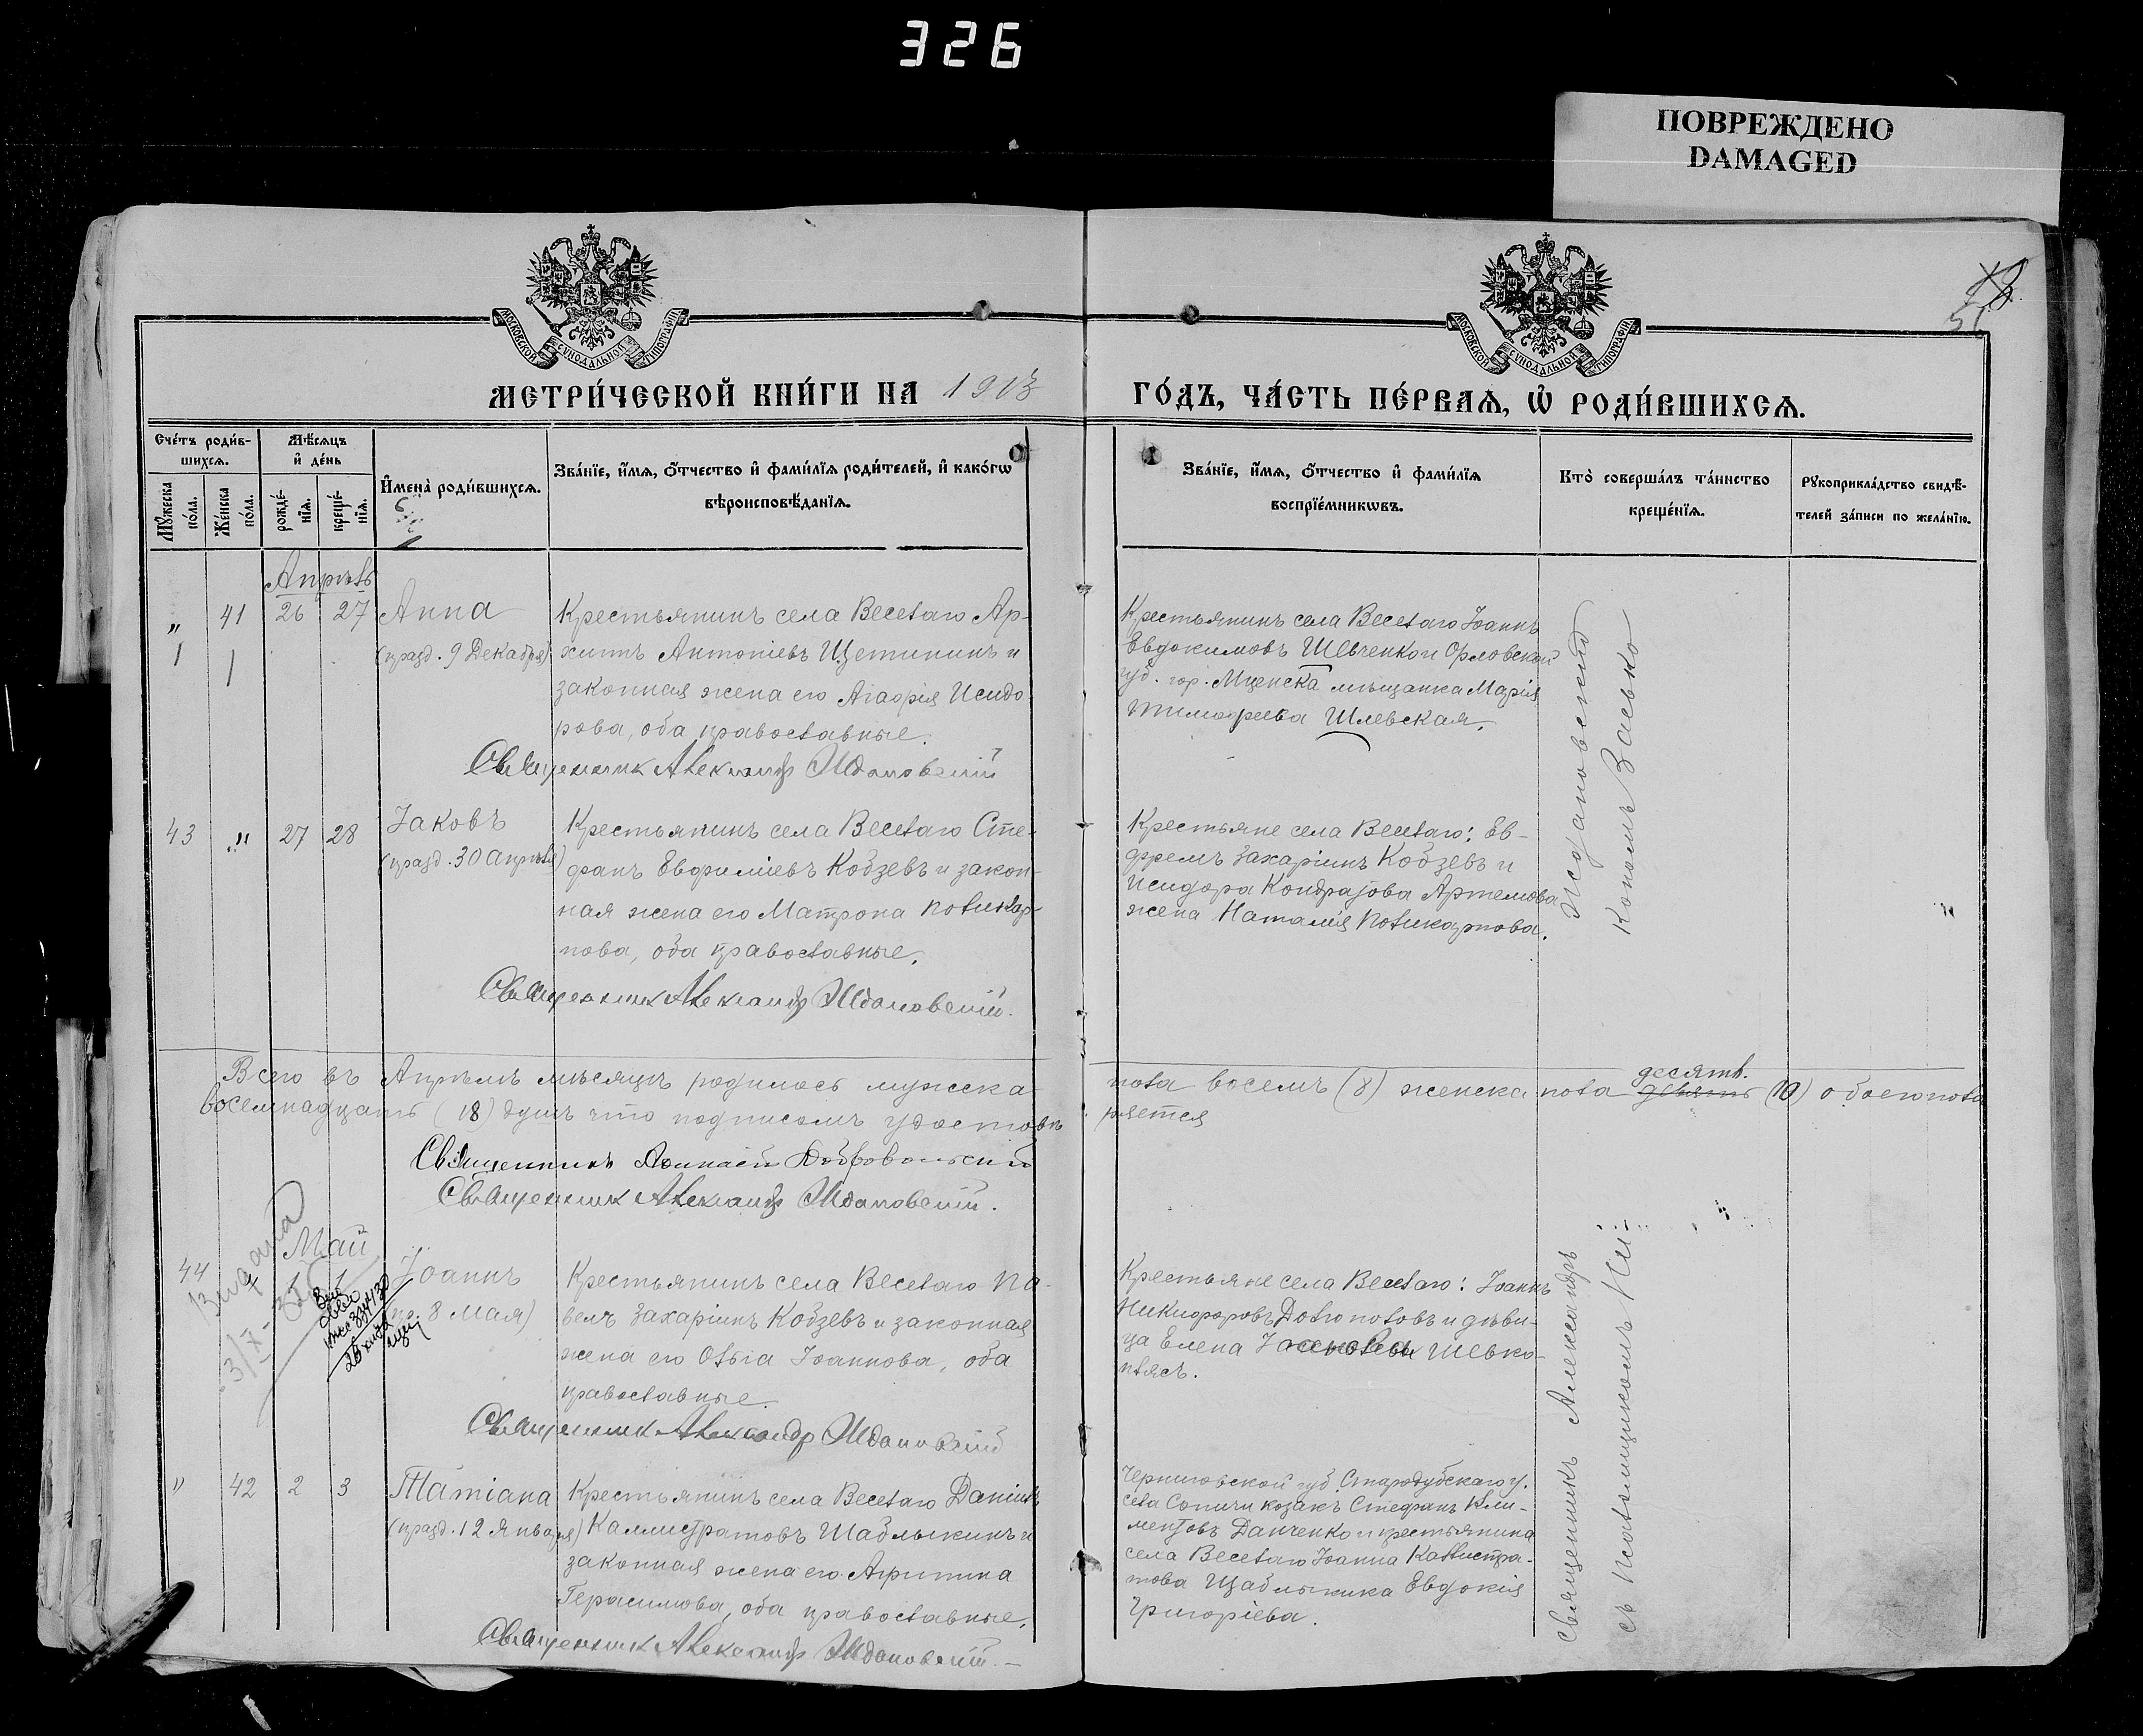 326
ПОВРЕЖДЕНО
DAMAGED
МОСКОВСКОЙ СУНОДАЛЬНОЙ ТИПОГРАФІИ
МОСКОВСКОЙ СУНОДАЛЬНОЙ ТИПОГРАФІИ
МЕТРИ́ЧЕСКОЙ КНИ́ГИ НА 1913
ГО́ДЪ, ЧА́СТЬ ПЕ́РВАЯ, Ѡ РОДИ́ВШИХСЯ.
Сче́тъ роди́в-
шихся.
Мꙋ́жеска по́ла.
Же́нска по́ла.
Мѣ́сяцъ
и҆ де́нь
рожде́-
нїя.
креще́-
нїя.
И҆мена̀ роди́вшихся.
Зва́нїе, и҆́мя, ѻ҆́тчество и҆ фами́лїя роди́телей, и҆ како́гѡ
вѣроисповѣ́данїя.
Зва́нїе, и҆́мя, ѻ҆́тчество и҆ фами́лїя
воспрїе́мникѡвъ.
Кто̀ соверша́лъ та́инство
креще́нїя.
Рꙋкоприкла́дство свидѣ́-
телей за́писи по жела́нїю.
Апрѣль
" 41 26 27 Анна
(празд. 9 Декабря)
Крестьянинъ села Веселаго Ар-
хипъ Антоніевъ Щетининъ и
законная жена его Агафія Исидо-
рова, оба православные.
Священник Александр Ждановский
Крестьянинъ села Веселаго Іоаннъ
Евдокимовъ Шевченко и Орловской
губ. гор. Мценска мѣщанка Марія
Тимофеева Шлевская.
43 " 27 28 Іаковъ
(празд. 30 Апрѣля)
Крестьянинъ села Веселаго Сте-
фанъ Евфиміевъ Кобзевъ и закон-
ная жена его Матрона Поликар-
пова, оба православные.
Священник Александр Ждановский.
Крестьяне села Веселаго: Ев-
фремъ Захаріинъ Кобзевъ и
Исидора Кондратова Артемова
жена Наталія Поликарпова.
Ждановский
Всего въ Апрѣлѣ мѣсяцѣ родилось мужска пола восемь (8) женска пола девять десять (10) обоего пола
восемнадцать (18) душъ что подписомъ удостовѣряется
Священникъ Добровольский
Священник Александр Ждановский.
Май
44 " 1 1 Іоаннъ
(пр. 8 Мая)
Крестьянинъ села Веселаго Па-
велъ Захаріинъ Кобзевъ и законная
жена его Ольга Іоаннова, оба
православные.
Священник Александр Ждановский
Крестьяне села Веселаго: Іоаннъ
Никифоровъ Долгополовъ и дѣви-
ца Елена Шевко-
плясъ.
" 42 2 3 Татіана
(празд. 12 Января)
Крестьянинъ села Веселаго Даніилъ
Каллистратовъ Шаблыкинъ и
законная жена его Агрипина
Герасимова, оба православные.
Священник Александр Ждановский.
Черниговской губ. Стародубскаго у.
села Сопичи козакъ Стефанъ Кли-
ментовъ Данченко и крестьянина
села Веселаго Іоанна Каллистра-
това Шаблыкина Евдокія
Григоріева.
Священникъ Александръ
съ псаломщикомъ